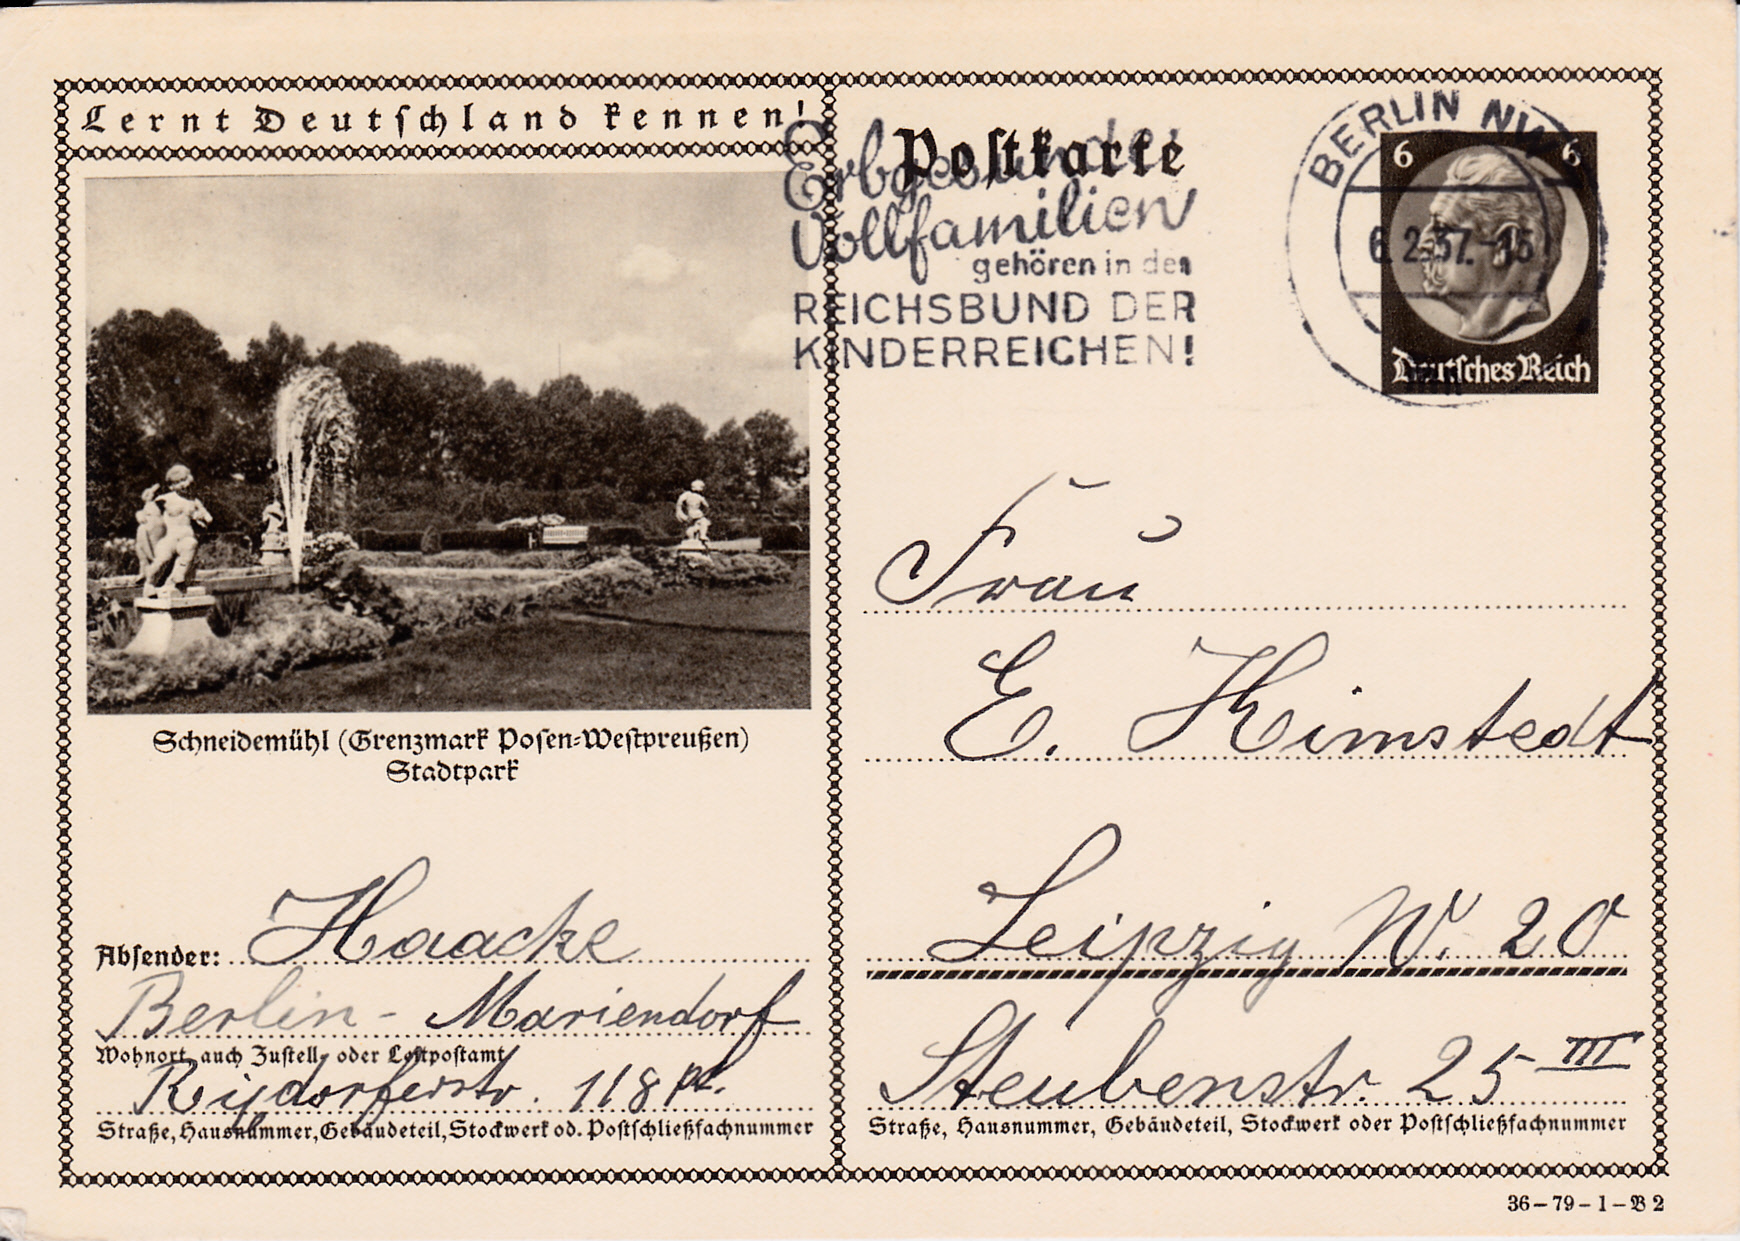 Lernt Deutschland kennen!
Schneidemühl (Grenzmark Posen-Westpreußen)
Stadtpark
Absender: Haacke
Berlin - Mariendorf
Wohnort, auch Zustell- oder Leitpostamt
118 pt.
Straße, Hausnummer, Gebäudeteil, Stockwerk od. Postschließfachnummer
Postkarte
Erbgesunde
Vollfamilien
gehören in den
REICHSBUND DER
KINDERREICHEN!
BERLIN NW
6.2.37.-15
6 6
Deutsches Reich
Frau
E. Himstedt
Leipzig W. 20
Steubenstr. 25 III
Straße, Hausnummer, Gebäudeteil, Stockwerk oder Postschließfachnummer
36-79-1-B 2